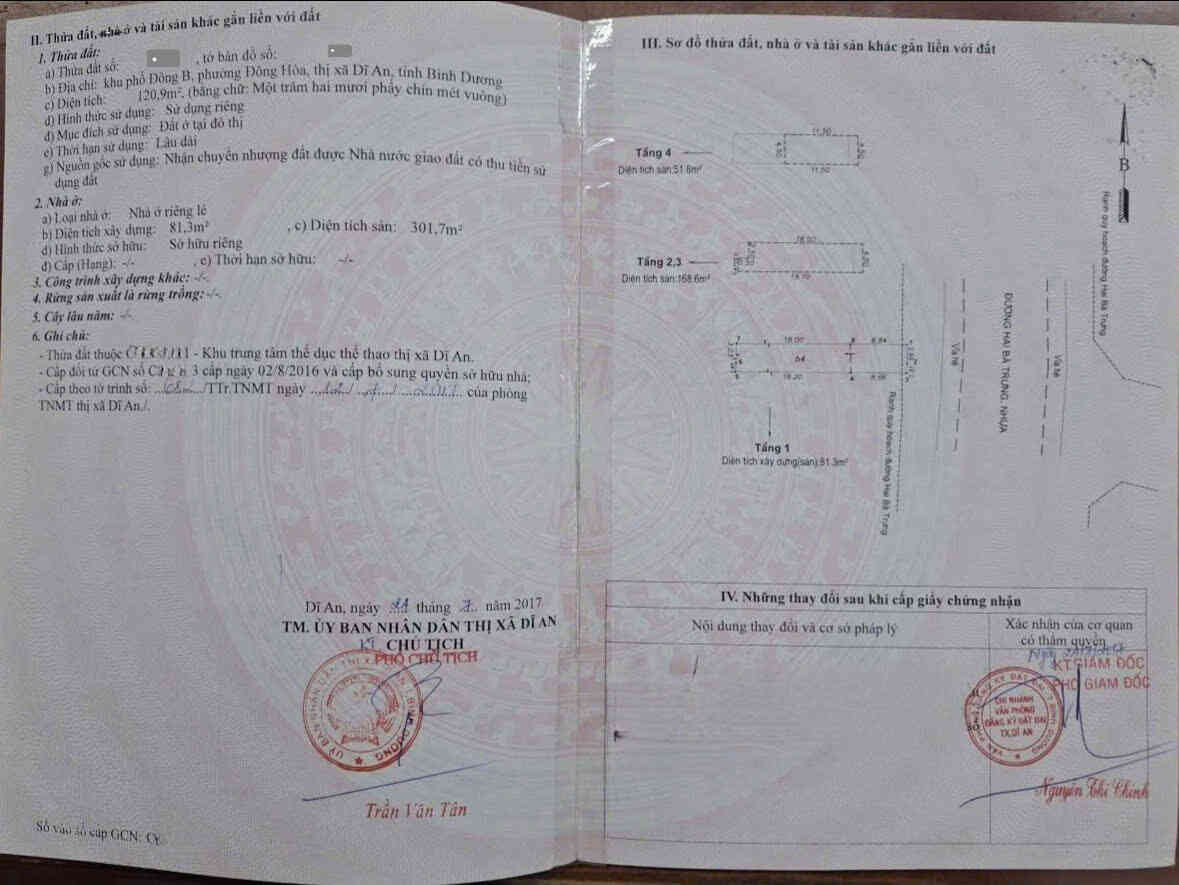 II. Thửa đất, nhà ở và tài sản khác gắn liền với đất
1. Thửa đất:
a) Thửa đất số: , tờ bản đồ số:
b) Địa chỉ: khu phố Đông B, phường Đông Hòa, thị xã Dĩ An, tỉnh Bình Dương
c) Diện tích: 120,9m², (bằng chữ: Một trăm hai mươi phẩy chín mét vuông)
d) Hình thức sử dụng: Sử dụng riêng
đ) Mục đích sử dụng: Đất ở tại đô thị
e) Thời hạn sử dụng: Lâu dài
g) Nguồn gốc sử dụng: Nhận chuyển nhượng đất được Nhà nước giao đất có thu tiền sử
dụng đất
2. Nhà ở:
a) Loại nhà ở: Nhà ở riêng lẻ
b) Diện tích xây dựng: 81,3m² , c) Diện tích sàn: 301,7m²
d) Hình thức sở hữu: Sở hữu riêng
đ) Cấp (Hạng): -/- , e) Thời hạn sở hữu: -/-
3. Công trình xây dựng khác: -/-
4. Rừng sản xuất là rừng trồng: -/-
5. Cây lâu năm: -/-
6. Ghi chú:
- Thửa đất thuộc - Khu trung tâm thể dục thể thao thị xã Dĩ An.
- Cấp đổi từ GCN số cấp ngày 02/8/2016 và cấp bổ sung quyền sở hữu nhà;
- Cấp theo tờ trình số: /TTr.TNMT ngày của phòng
TNMT thị xã Dĩ An./.
Dĩ An, ngày tháng 7 năm 2017
TM. ỦY BAN NHÂN DÂN THỊ XÃ DĨ AN
KT. CHỦ TỊCH
PHÓ CHỦ TỊCH
Trần Văn Tân
Số vào sổ cấp GCN:
III. Sơ đồ thửa đất, nhà ở và tài sản khác gắn liền với đất
B
11.50
Tầng 4
4.50
4.50
Diện tích sàn:51.8m²
11.50
Ranh quy hoạch đường Hai Bà Trưng
Tầng 2,3
Diện tích sàn:168.6m²
18.00
Vỉa hè
ĐƯỜNG HAI BÀ TRƯNG, NHỰA
Vỉa hè
Ranh quy hoạch đường Hai Bà Trưng
Tầng 1
Diện tích xây dựng(sàn):81.3m²
IV. Những thay đổi sau khi cấp giấy chứng nhận
Nội dung thay đổi và cơ sở pháp lý
Xác nhận của cơ quan
có thẩm quyền
KT.GIÁM ĐỐC
PHÓ GIÁM ĐỐC
CHI NHÁNH
VĂN PHÒNG
ĐĂNG KÝ ĐẤT ĐAI
TX.DĨ AN
Nguyễn Thị Chinh